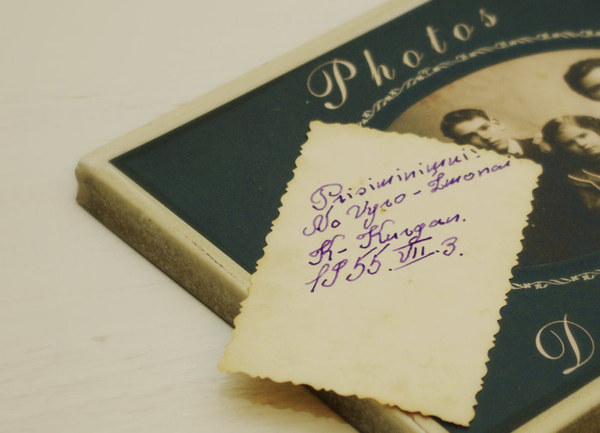 Photos
Prisiminimui!
No Vyro - Žmonai
K- Kurgan.
1955.VII.3.
D